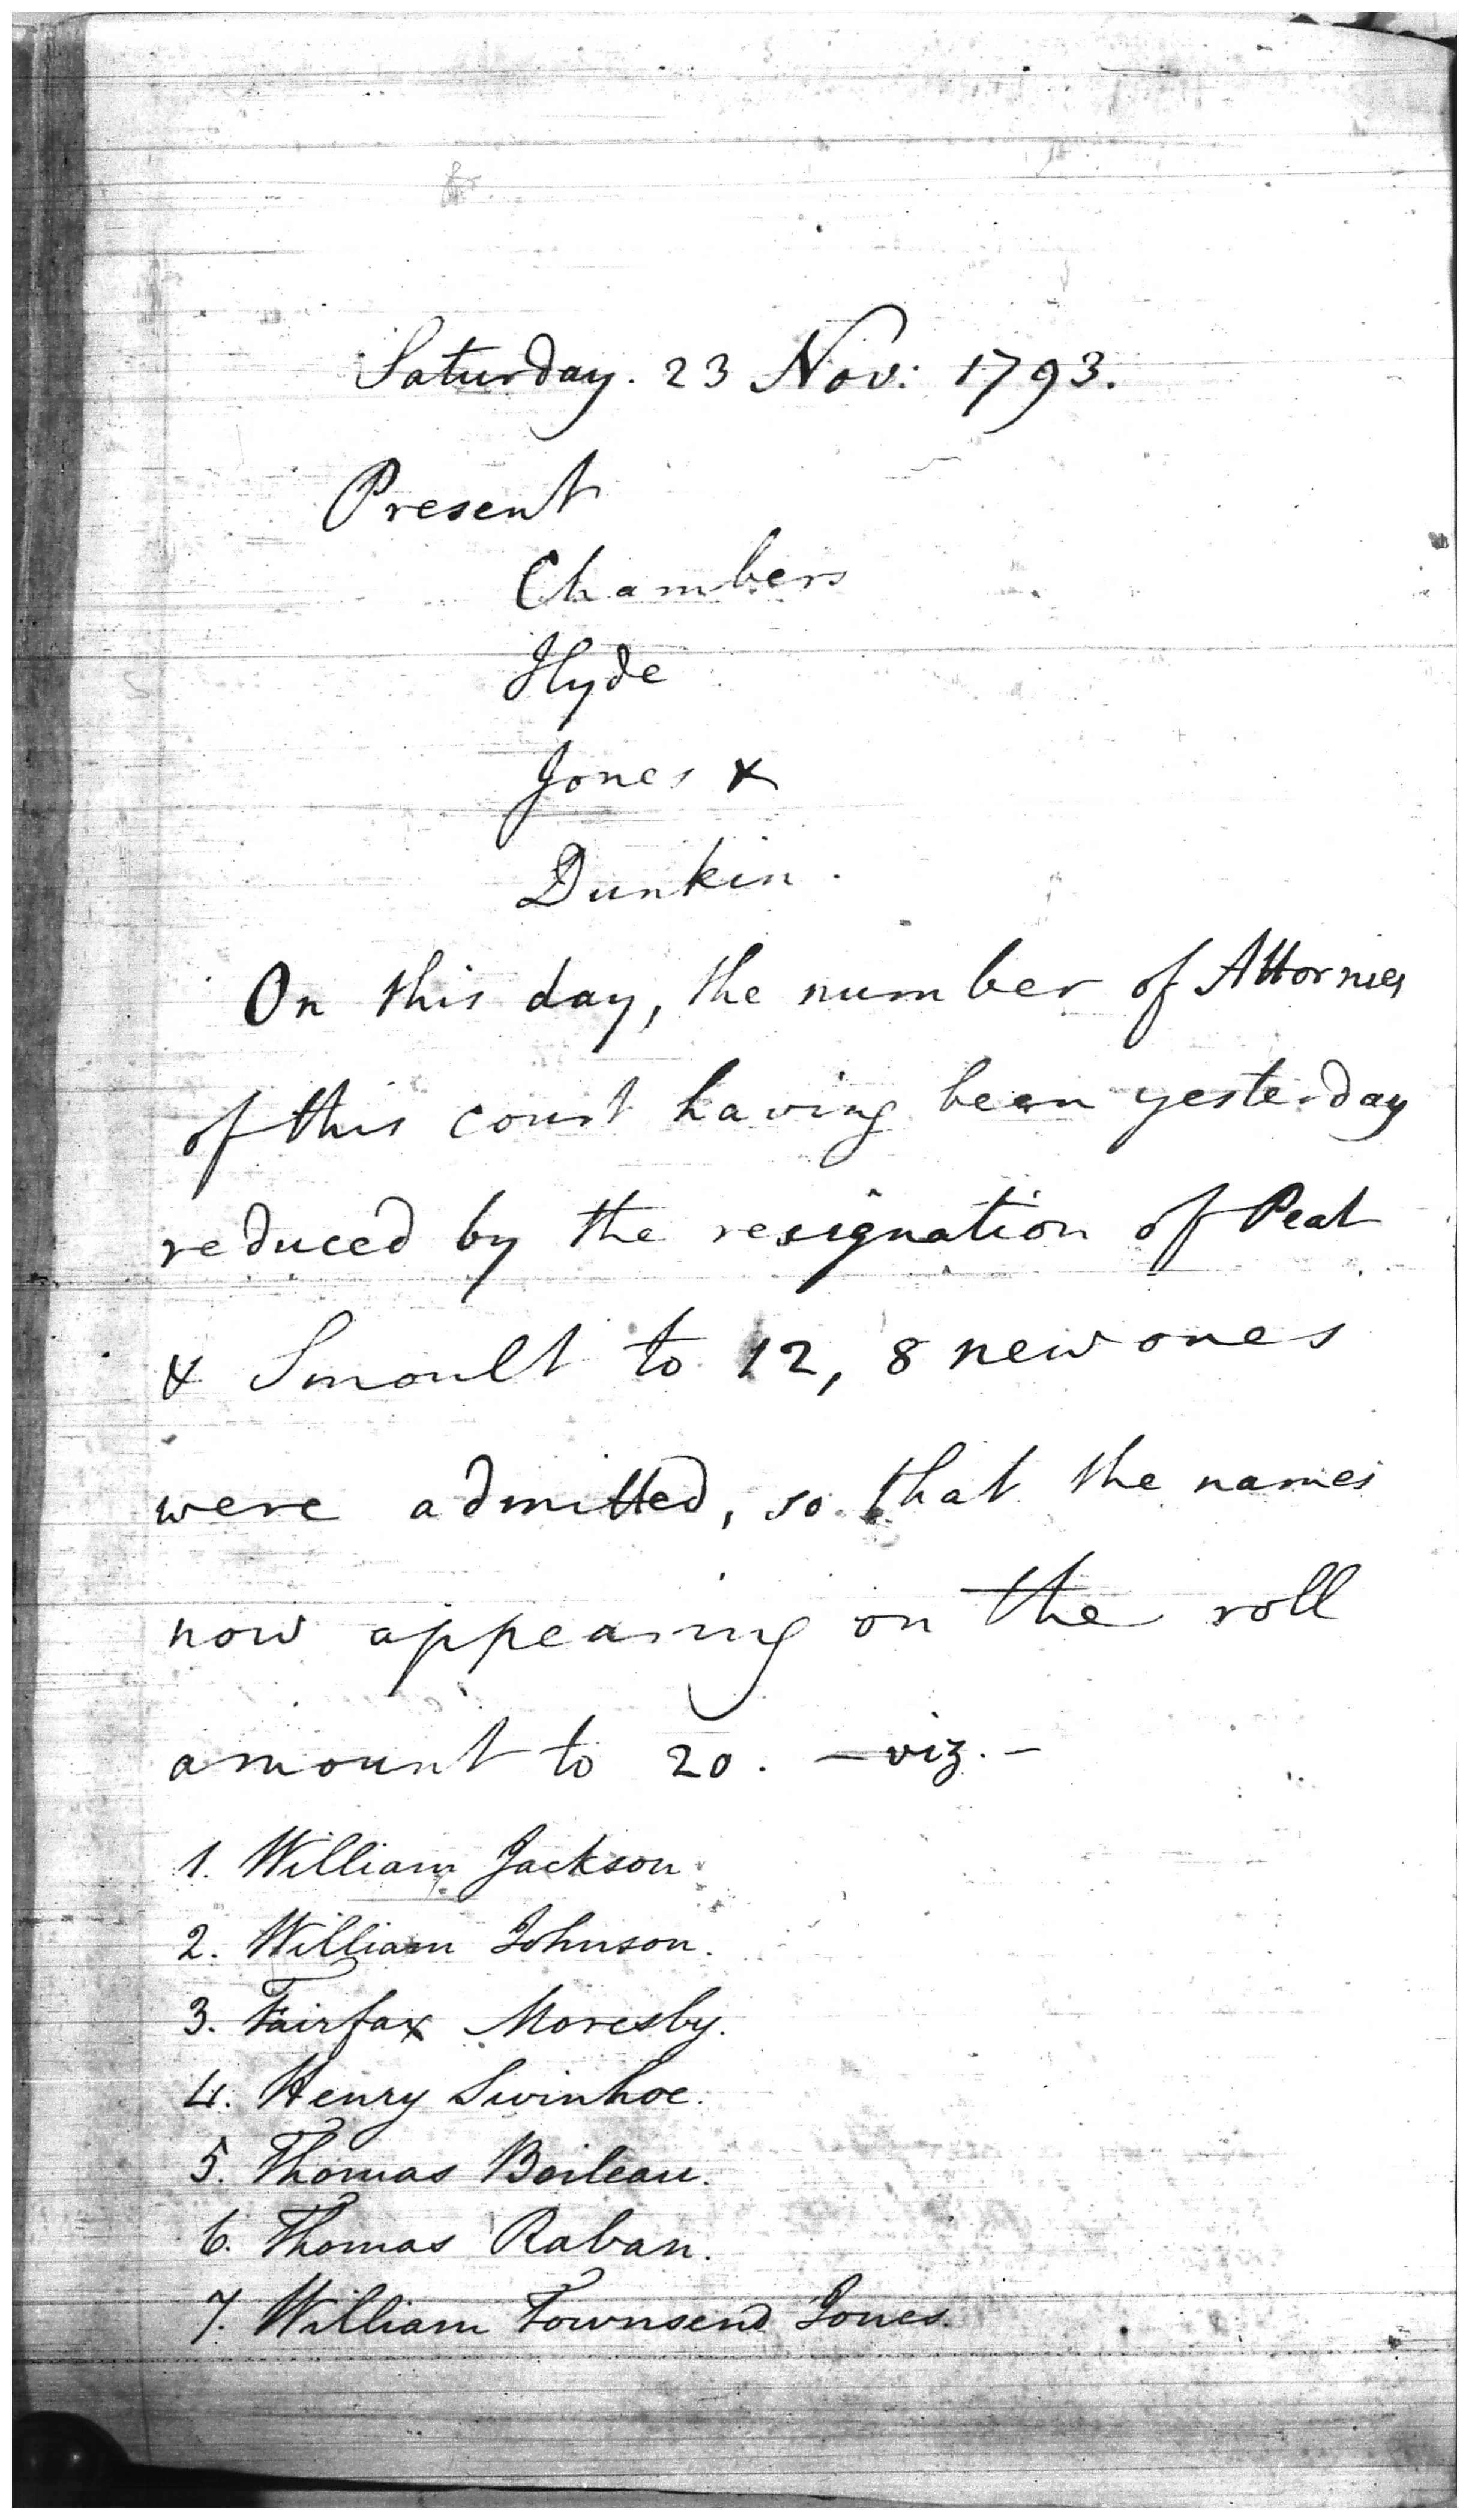 Saturday. 23 Nov: 1793.
Present
Chambers
Hyde
Jones &
Dunkin.
On this day, the number of Attornies
of this court having been yesterday
reduced by the resignation of Peat
& Smoult to 12, 8 new ones
were admitted, so that the names
now appearing on the roll
amount to 20. — viz. —
1. William Jackson.
2. William Johnson.
3. Fairfax Moresby.
4. Henry Swinhoe.
5. Thomas Boileau.
6. Thomas Raban.
7. William Townsend Jones.